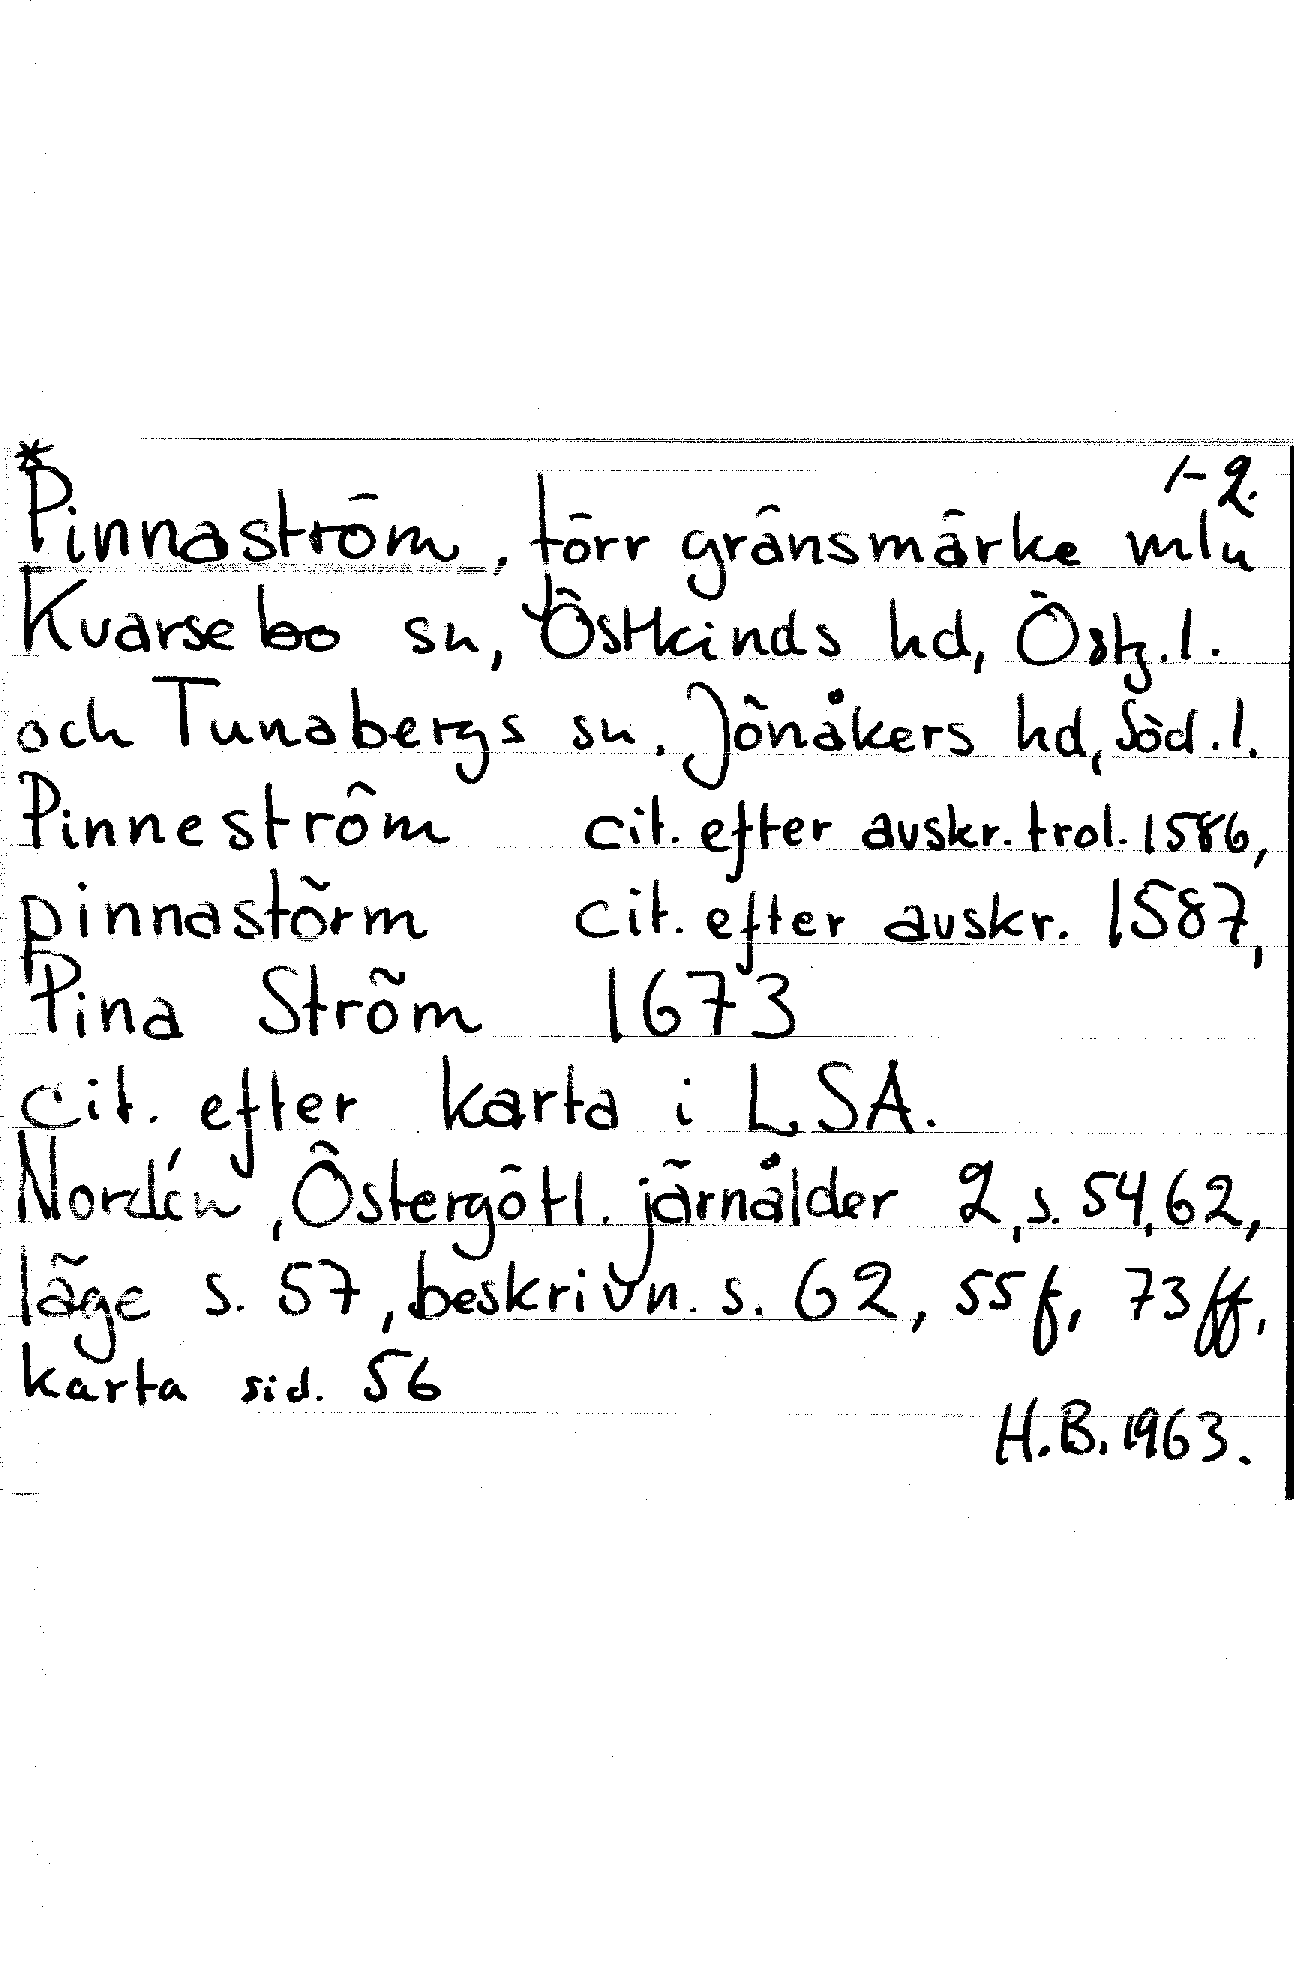 1-2.
*Pinnaström, förr gränsmärke mln
Kvarsebo sn, Östkinds hd, Östg.l.
och Tunabergs sn, Jönåkers hd, Söd.l.
Pinneström cit. efter avskr. trol. 1586,
pinnastörm cit. efter avskr. 1587,
Pina Ström 1673
cit. efter karta i LSA.
Nordén, Östergötl. järnålder 2, s. 54, 62,
läge s. 57, beskrivn. s. 62, 55f, 73ff,
karta sid. 56
H.B. 1963.